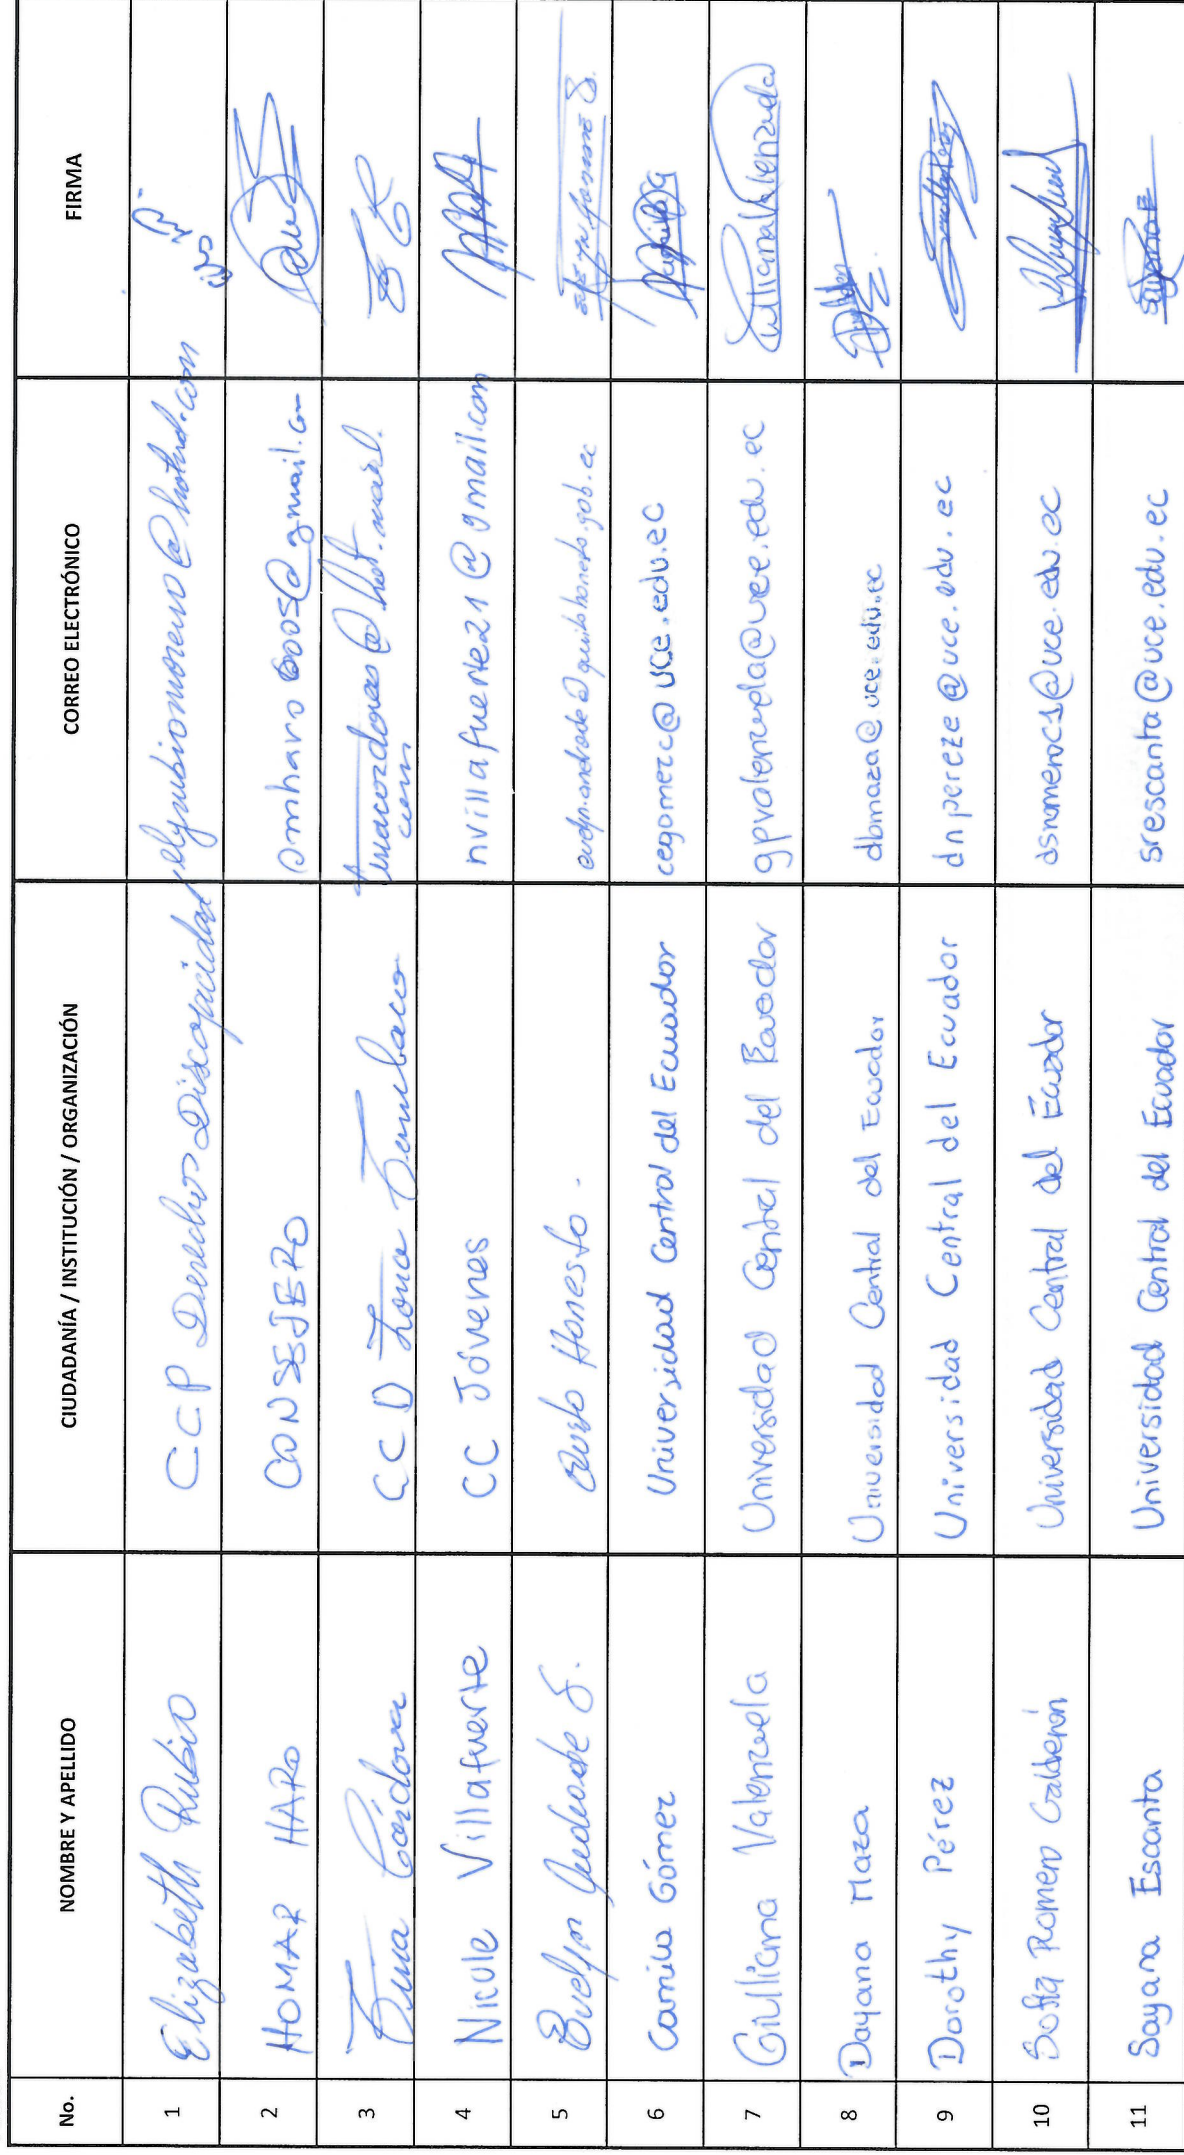 No. NOMBRE Y APELLIDO CIUDADANÍA / INSTITUCIÓN / ORGANIZACIÓN CORREO ELECTRÓNICO FIRMA
1 Elizabeth Rubio CCP Derechos Discapacidad elyrubiomoreno@hotmail.com
2 HOMAR HARO CONSEJERO omharo6005@gmail.com
3 Tuna Córdova CCD Zona Tumbaco
4 Nicole Villafuerte CC Jóvenes nvillafuerte21@gmail.com
5 Evelyn Andrade G. Quito Honesto. evelyn.andrade@quitohonesto.gob.ec
6 Camila Gómez Universidad Central del Ecuador cegomezc@uce.edu.ec
7 Giulliana Valenzuela Universidad Central del Ecuador gpvalenzuela@uce.edu.ec Giulliana Valenzuela
8 Dayana Maza Universidad Central del Ecuador dbmaza@uce.edu.ec
9 Dorothy Pérez Universidad Central del Ecuador dnpereze@uce.edu.ec
10 Sofía Romero Calderón Universidad Central del Ecuador dsromeroc1@uce.edu.ec
11 Sayana Escanta Universidad Central del Ecuador srescanta@uce.edu.ec